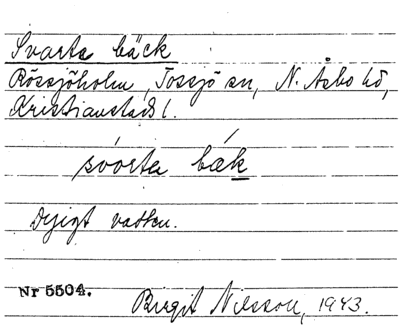 Svarta bäck
Rössjöholm, Tossjö sn, N. Åsbo hd,
Kristianstads l.
svórta bǽk
Dyigt vatten.
Nr 5504.
Birgit Nilsson, 1943.